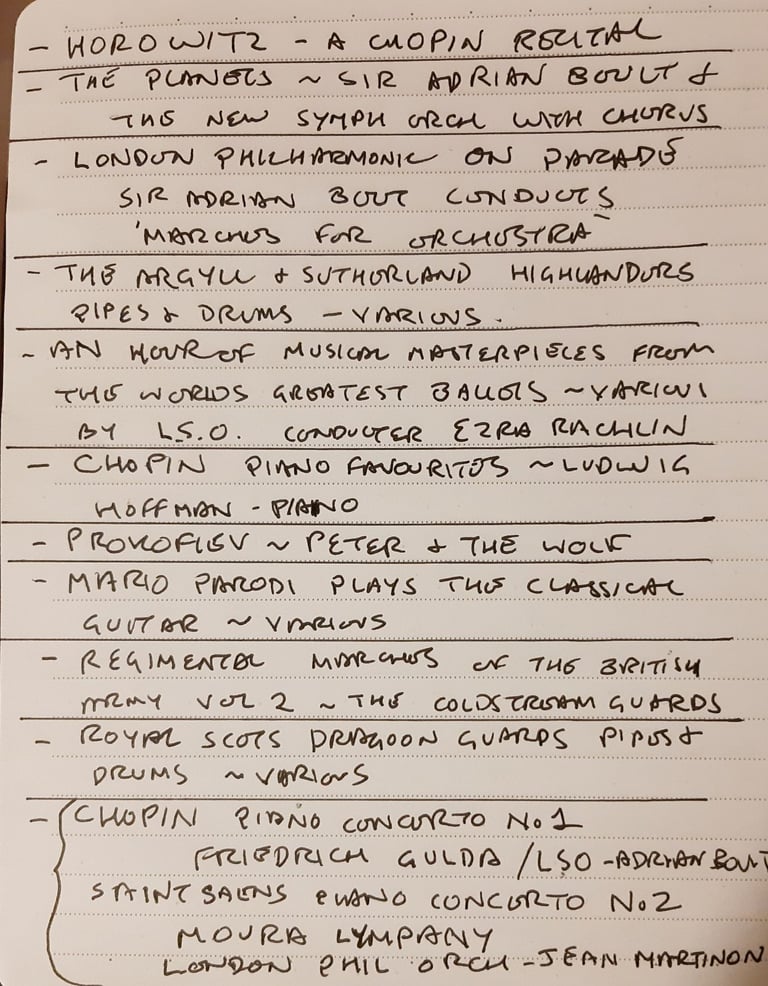 - HOROWITZ - A CHOPIN RECITAL
- THE PLANETS ~ SIR ADRIAN BOULT &
THE NEW SYMPH ORCH WITH CHORUS
- LONDON PHILHARMONIC ON PARADE
SIR ADRIAN BOULT CONDUCTS
'MARCHES FOR ORCHESTRA'
- THE ARGYLL & SUTHERLAND HIGHLANDERS
PIPES & DRUMS - VARIOUS.
- AN HOUR OF MUSICAL MASTERPIECES FROM
THE WORLDS GREATEST BALLETS ~ VARIOUS
BY L.S.O. CONDUCTER EZRA RACHLIN
- CHOPIN PIANO FAVOURITES ~ LUDWIG
HOFFMAN - PIANO
- PROKOFIEV ~ PETER & THE WOLF
- MARIO PARODI PLAYS THE CLASSICAL
GUITAR ~ VARIOUS
- REGIMENTAL MARCHES OF THE BRITISH
ARMY VOL 2 ~ THE COLDSTREAM GUARDS
- ROYAL SCOTS DRAGOON GUARDS PIPES &
DRUMS ~ VARIOUS
- CHOPIN PIANO CONCERTO No 1
FRIEDRICH GULDA / LSO - ADRIAN BOULT
SAINT SAENS PIANO CONCERTO No 2
MOURA LYMPANY
LONDON PHIL ORCH - JEAN MARTINON